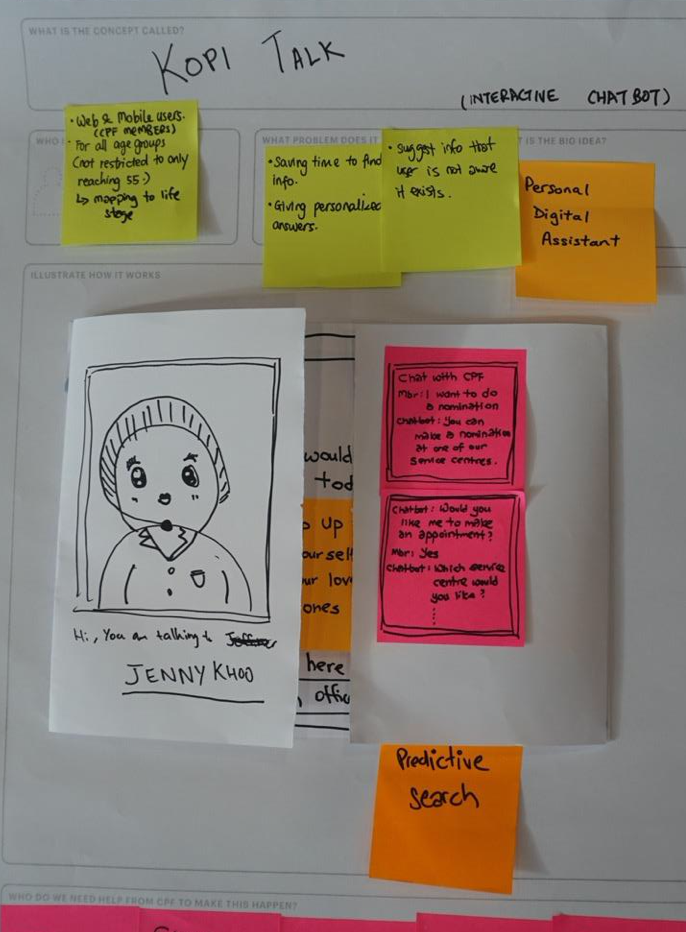 WHAT IS THE CONCEPT CALLED?
KOPI TALK
(INTERACTIVE CHATBOT)
WHO
• Web & Mobile users.
(CPF MEMBERS)
• For all age groups
(not restricted to only
reaching 55:)
↳ mapping to life
stage
WHAT PROBLEM DOES IT
• Saving time to find
info.
• Giving personalized
answers.
• Suggest info that
user is not aware
it exists.
IS THE BIG IDEA?
Personal
Digital
Assistant
ILLUSTRATE HOW IT WORKS
Hi, You are talking to
JENNY KHOO
would
tod
up
ourself
ur lov
ones
here
offic
Chat with CPF
Mbr: I want to do
a nomination
Chatbot: You can
make a nomination
at one of our
service centres.
Chatbot: Would you
like me to make
an appointment?
Mbr: Yes
Chatbot: Which service
centre would
you like?
Predictive
search
WHO DO WE NEED HELP FROM CPF TO MAKE THIS HAPPEN?